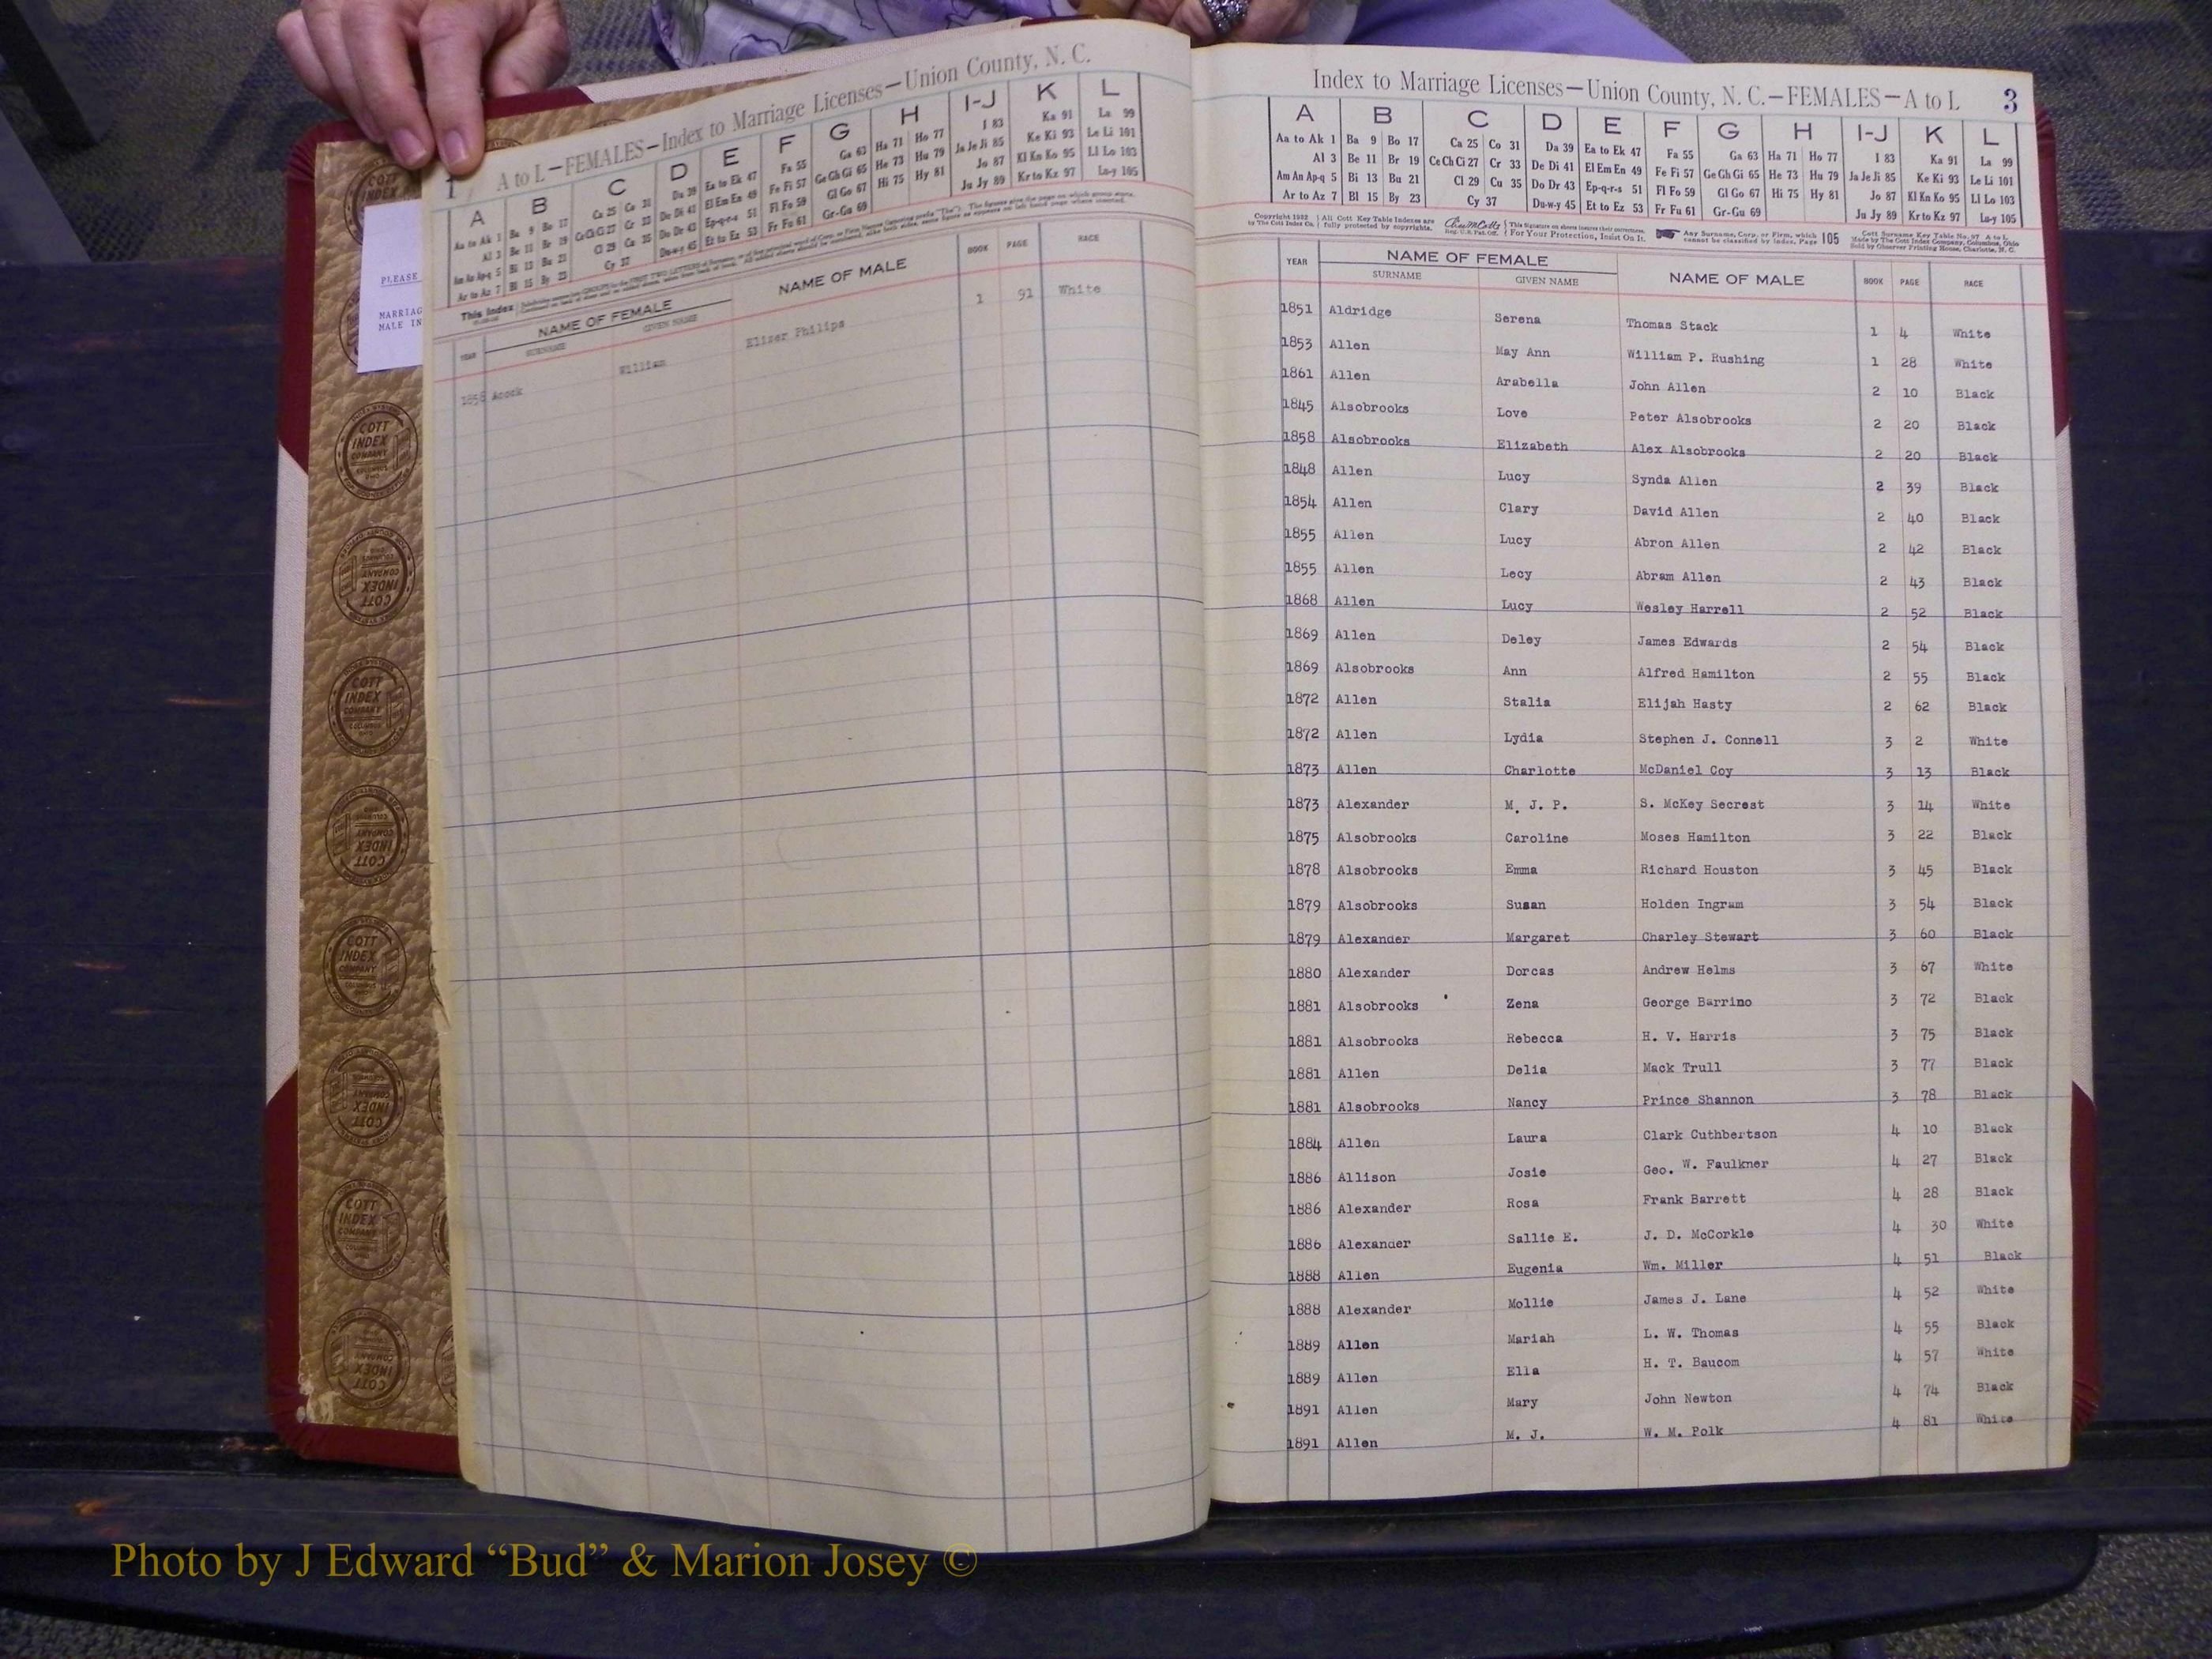 1 A to L—FEMALES—Index to Marriage Licenses—Union County, N. C.
A B C D E F G H I-J K L
Aa to Ak 1 Ba 9 Bo 17 Ca 25 Co 31 Da 39 Ea to Ek 47 Fa 55 Ga 63 Ha 71 Ho 77 I 83 Ka 91 La 99
Al 3 Be 11 Br 19 Ce Ch Ci 27 Cr 33 De Di 41 El Em En 49 Fe Fi 57 Ge Gh Gi 65 He 73 Hu 79 Ja Je Ji 85 Ke Ki 93 Le Li 101
Am An Ap-q 5 Bi 13 Bu 21 Cl 29 Cu 35 Do Dr 43 Ep-q-r-s 51 Fl Fo 59 Gl Go 67 Hi 75 Hy 81 Jo 87 Kl Kn Ko 95 Ll Lo 103
Ar to Az 7 Bl 15 By 23 Cy 37 Du-w-y 45 Et to Ez 53 Fr Fu 61 Gr-Gu 69 Ju Jy 89 Kr to Kz 97 Lu-y 105
This Index
YEAR NAME OF FEMALE NAME OF MALE BOOK PAGE RACE
SURNAME GIVEN NAME
1858 Acock William Elizer Philips 1 91 White
PLEASE
MARRIAG
MALE IN
COTT INDEX COMPANY
Index to Marriage Licenses—Union County, N. C.—FEMALES—A to L 3
A B C D E F G H I-J K L
Aa to Ak 1 Ba 9 Bo 17 Ca 25 Co 31 Da 39 Ea to Ek 47 Fa 55 Ga 63 Ha 71 Ho 77 I 83 Ka 91 La 99
Al 3 Be 11 Br 19 Ce Ch Ci 27 Cr 33 De Di 41 El Em En 49 Fe Fi 57 Ge Gh Gi 65 He 73 Hu 79 Ja Je Ji 85 Ke Ki 93 Le Li 101
Am An Ap-q 5 Bi 13 Bu 21 Cl 29 Cu 35 Do Dr 43 Ep-q-r-s 51 Fl Fo 59 Gl Go 67 Hi 75 Hy 81 Jo 87 Kl Kn Ko 95 Ll Lo 103
Ar to Az 7 Bl 15 By 23 Cy 37 Du-w-y 45 Et to Ez 53 Fr Fu 61 Gr-Gu 69 Ju Jy 89 Kr to Kz 97 Lu-y 105
Copyright 1932 All Cott Key Table Indexes are This signature on above insures their correctness. Any Surname, Corp. or Firm, which 105 Cott Surname Key Table No. 97 A to L
by The Cott Index Co. fully protected by copyrights. Reg. U.S. Pat. Off. For Your Protection, Insist On It. cannot be classified by index, Page Made by The Cott Index Company, Columbus, Ohio
Sold by Observer Printing House, Charlotte, N. C.
YEAR NAME OF FEMALE NAME OF MALE BOOK PAGE RACE
SURNAME GIVEN NAME
1851 Aldridge Serena Thomas Stack 1 4 White
1853 Allen May Ann William P. Rushing 1 28 White
1861 Allen Arabella John Allen 2 10 Black
1845 Alsobrooks Love Peter Alsobrooks 2 20 Black
1858 Alsobrooks Elizabeth Alex Alsobrooks 2 20 Black
1848 Allen Lucy Synda Allen 2 39 Black
1854 Allen Clary David Allen 2 40 Black
1855 Allen Lucy Abron Allen 2 42 Black
1855 Allen Lecy Abram Allen 2 43 Black
1868 Allen Lucy Wesley Harrell 2 52 Black
1869 Allen Deley James Edwards 2 54 Black
1869 Alsobrooks Ann Alfred Hamilton 2 55 Black
1872 Allen Stalia Elijah Hasty 2 62 Black
1872 Allen Lydia Stephen J. Connell 3 2 White
1873 Allen Charlotte McDaniel Coy 3 13 Black
1873 Alexander M. J. P. S. McKey Secrest 3 14 White
1875 Alsobrooks Caroline Moses Hamilton 3 22 Black
1878 Alsobrooks Emma Richard Houston 3 45 Black
1879 Alsobrooks Susan Holden Ingram 3 54 Black
1879 Alexander Margaret Charley Stewart 3 60 Black
1880 Alexander Dorcas Andrew Helms 3 67 White
1881 Alsobrooks Zena George Barrino 3 72 Black
1881 Alsobrooks Rebecca H. V. Harris 3 75 Black
1881 Allen Delia Mack Trull 3 77 Black
1881 Alsobrooks Nancy Prince Shannon 3 78 Black
1884 Allen Laura Clark Cuthbertson 4 10 Black
1886 Allison Josie Geo. W. Faulkner 4 27 Black
1886 Alexander Rosa Frank Barrett 4 28 Black
1886 Alexander Sallie E. J. D. McCorkle 4 30 White
1888 Allen Eugenia Wm. Miller 4 51 Black
1888 Alexander Mollie James J. Lane 4 52 White
1889 Allen Mariah L. W. Thomas 4 55 Black
1889 Allen Ella H. T. Baucom 4 57 White
1891 Allen Mary John Newton 4 74 Black
1891 Allen M. J. W. M. Polk 4 81 White
Photo by J Edward “Bud” & Marion Josey ©